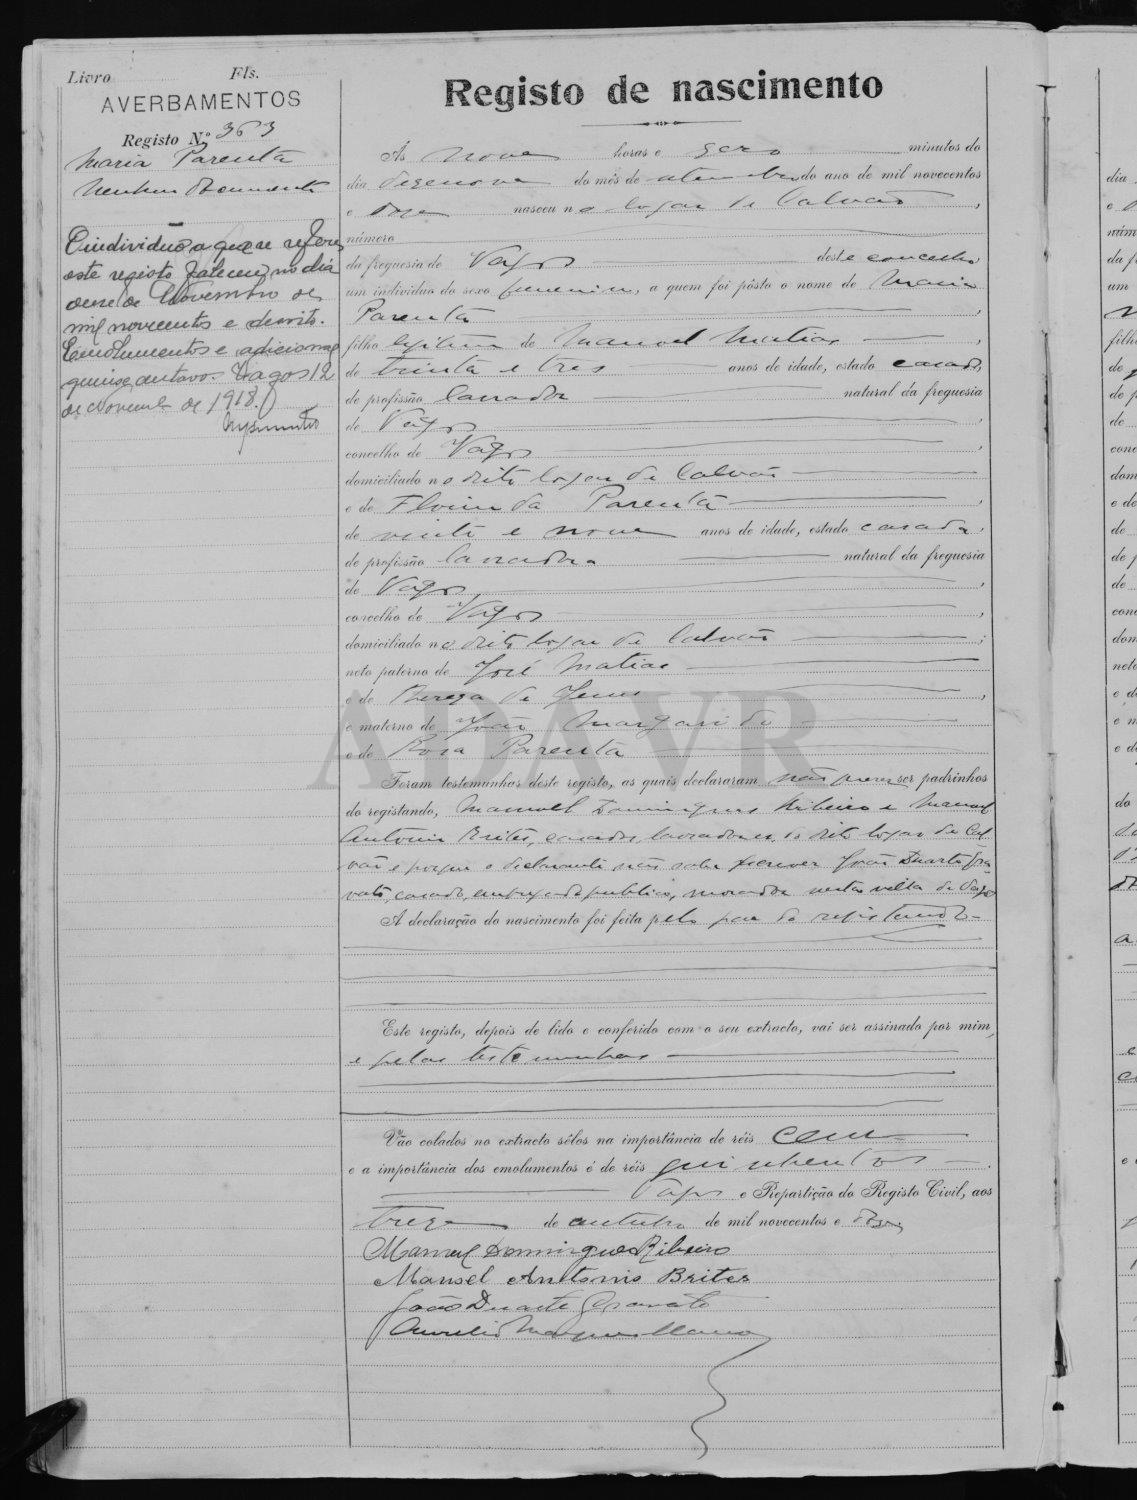 Livro Fls.
AVERBAMENTOS
Registo Nº 363
Maria Parenta
Nenhum Documento
O individuo a que se refere
este registo faleceu no dia
onze de Novembro de
mil novecentos e dezoito.
Emolumentos e adicionaes
quinze centavos. Vagos 12
de Novembro de 1918.
Registo de nascimento
Ás nove horas e zero minutos do
dia dezenove do mês de setembro do ano de mil novecentos
e doze nasceu no logar de Calvão,
número
da freguesia de Vagos deste concelho
um indivíduo do sexo femenino, a quem foi pôsto o nome de Maria
Parenta,
filho legitimo de Manoel Matias,
de trinta e tres anos de idade, estado casado,
de profissão lavrador natural da freguesia
de Vagos,
concelho de Vagos,
domiciliado no dito logar de Calvão
e de Florinda Parenta,
de vinte e nove anos de idade, estado casada,
de profissão lavradora natural da freguesia
de Vagos,
concelho de Vagos,
domiciliado no dito logar de Calvão;
neto paterno de José Matias
e de Thereza de Jesus,
e materno de João Margarido
e de Rosa Parenta
Foram testemunhas deste registo, as quais declararam não querer ser padrinhos
do registando, Manoel Domingues Ribeiro e Manoel
Antonio Brites, casados, lavradores, do dito logar de Cal
vão e porque o declarante não sabe escrever João Duarte Gra
vato, casado, empregado publico, morador nesta villa de Vagos
A declaração do nascimento foi feita pelo pae do registando
Este registo, depois de lido e conferido com o seu extracto, vai ser assinado por mim,
e pelas testemunhas
Vão colados no extracto sêlos na importância de réis cem
e a importância dos emolumentos é de réis quinhentos.
Vagos e Repartição do Registo Civil, aos
treze de outubro de mil novecentos e doze
Manuel Domingues Ribeiro
Manoel Antonio Brites
João Duarte Gravato
Aurelio Marques
ADAVR